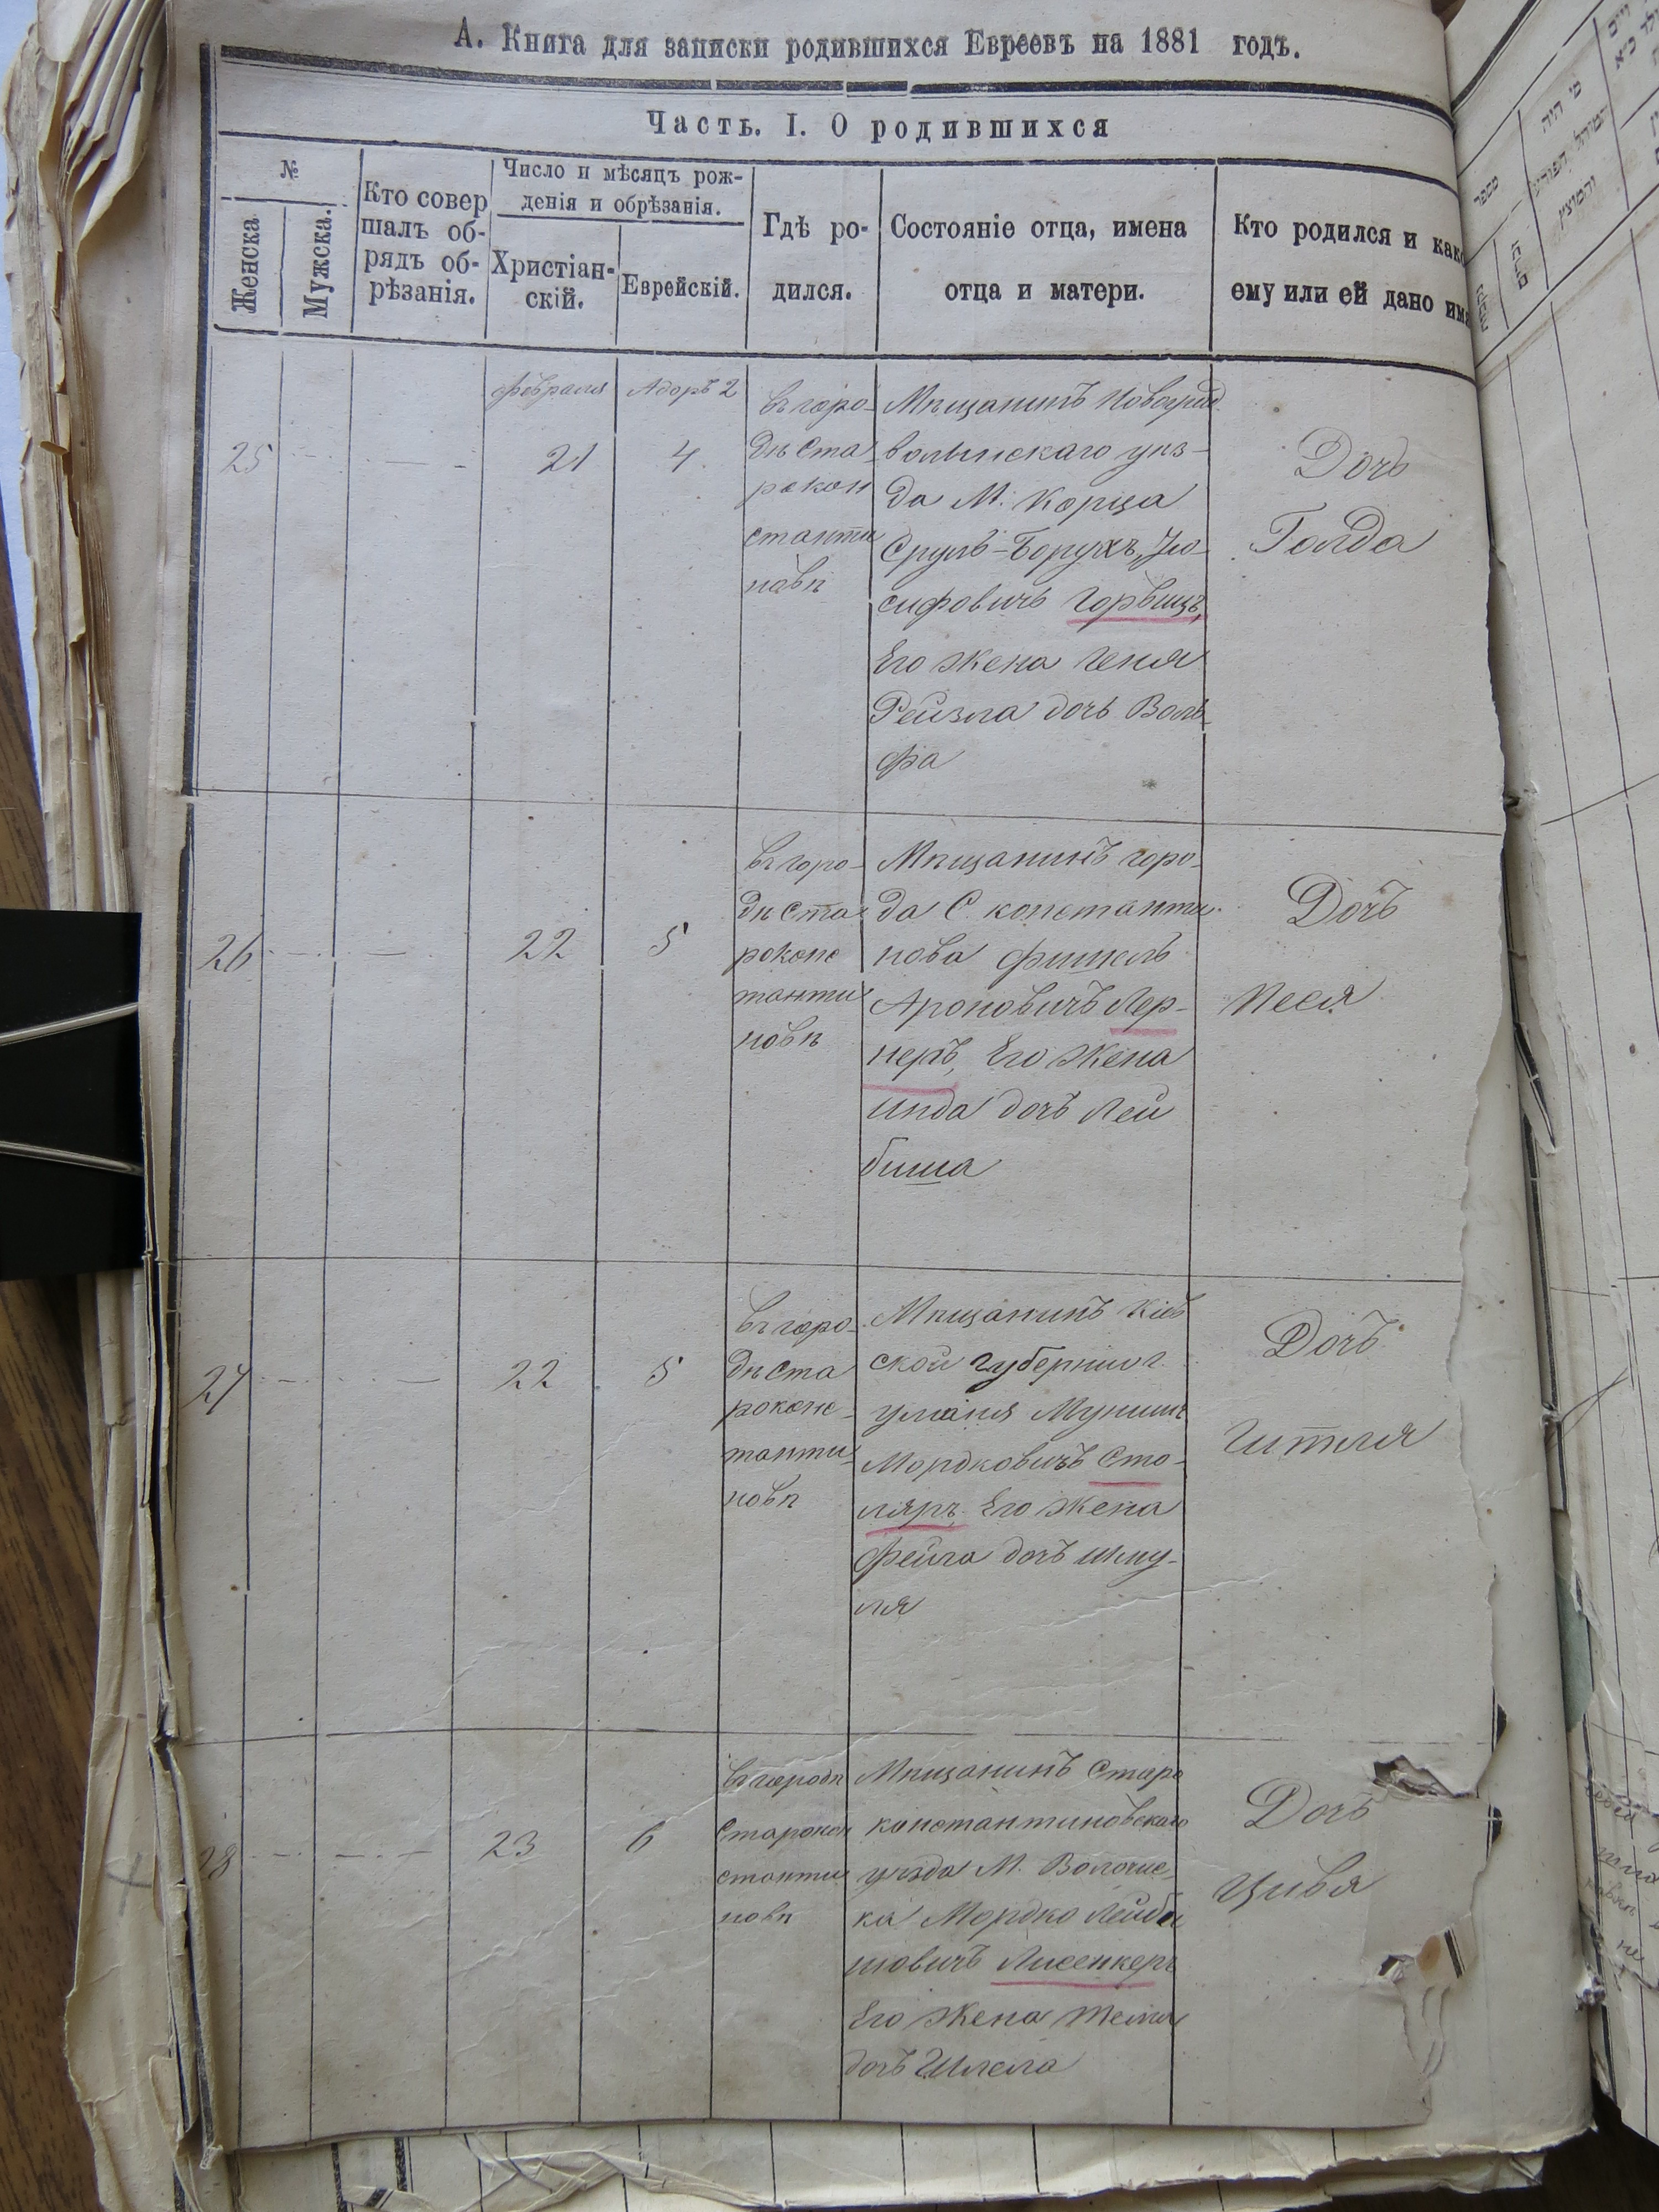 А. Книга для записки родившихся Евреевъ на 1881 годъ.
Часть. I. О родившихся
№
Женска
Мужска.
Кто совер
шалъ об-
рядъ об-
рѣзанія.
Число и мѣсяцъ рож-
денія и обрѣзанія.
Христіан-
скій.
Еврейскій.
Гдѣ ро-
дился.
Состояніе отца, имена
отца и матери.
Кто родился и как
ему или ей дано имя
25
февраля
21
Адоръ 2
4
въ горо-
дѣ Ста-
рокон
станти
новѣ
Мѣщанинъ Новоград
волынскаго уѣз-
да М. Корца
Сруль-Борухъ Іо-
сифовичъ Горвицъ,
Его жена Геня
Рейзла дочь Воль-
фа
Дочь
Голда
26
22
5
въ горо-
дѣ Ста-
роконс
танти
новѣ
Мѣщанинъ горо-
да С. константи-
нова Фишель
Ароновичъ Лер-
неръ, Его жена
Инда дочъ Лей
биша
Дочъ
Песя
27
22
5
въ горо-
дѣ Ста
роконс-
танти-
новѣ
Мѣщанинъ Кіев
ской губерніи г.
уманя Мунишъ
Мордковичъ Сто-
ляръ, Его жена
Фейга дочъ Шму-
ля
Дочъ
Итля
28
23
6
въ городѣ
Старокон
станти
новѣ
Мѣщанинъ Старо
константиновскаго
уѣзда М. Волочис-
ка Мордко Лейби
шовичъ Лисенкеръ
Его жена
дочъ Шлема
Дочъ
Цивя
מספר
מי היה
המוהל